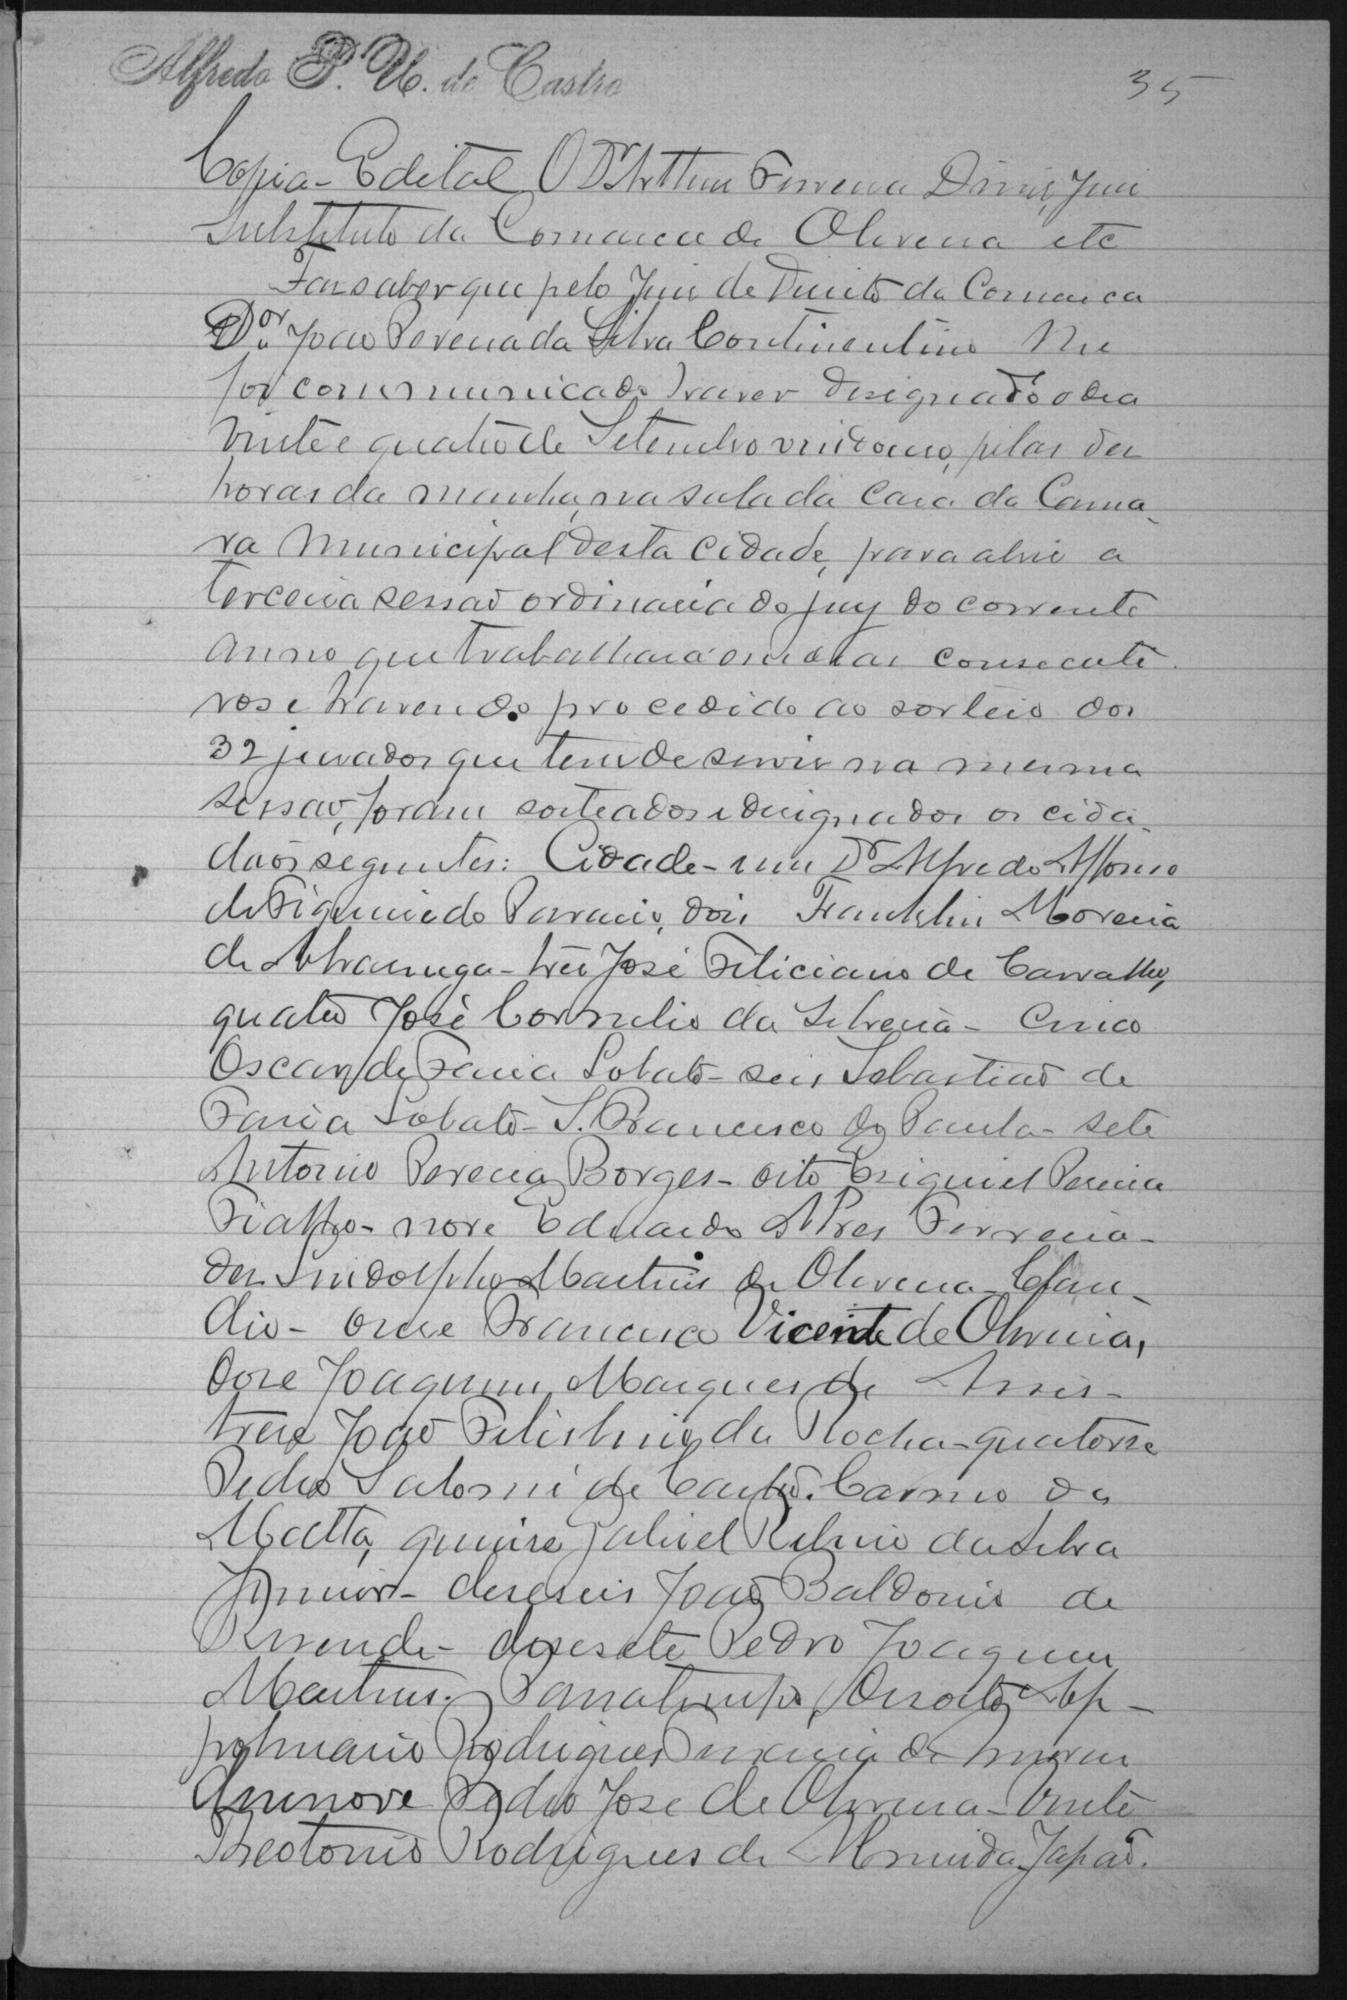 Alfredo P. U. de Castro
35
Copia - Edital O Dr Arthur Ferreira Diniz, Juiz
Substituto da Comarca de Oliveira etc
Faz saber que pelo Juiz de Direito da Comarca
Dor João Pereira da Silva Continentino me
foi communicado haver designado o dia
vinte e quatro de Setembro vindouro, pelas dez
horas da manhã, na sala da Casa da Cama-
ra Municipal desta cidade, para abrir a
terceira sessão ordinaria do jury do corrente
anno que trabalhará em dias consecuti-
vos e havendo procedido ao sorteio dos
32 jurados que tem de servir na mesma
sessão, foram sorteados e designados os cida-
dãos seguintes: Cidade - um Dr Alfredo Affonso
de Figueiredo Paraiso, dois Franklin Moreira
de - tres José Feliciano de Carvalho,
quatro José Cornelio da Silveira - cinco
Oscar de Faria Lobato - seis Sebastião de
Faria Lobato - S. Francisco de Paula - sete
Antonio Pereira Borges - oito Esiquiel Pereira
Fialho - nove Eduardo Alves Ferreira -
dez Lindolpho Martins de Oliveira - Clau-
dio - onze Francisco Vicente de Oliveira,
doze Joaquim Marques de Assis -
treze João Felisbino da Rocha - quatorze
Pedro Salomé de Castro. Carmo da
Matta, quinze Gabriel Ribeiro da Silva
Junior - deseseis João Baldonio de
Resende - desesete Pedro Joaquim
Martins. Passatempo, Desoito Ap-
polinario Rodrigues de
Desenove Pedro José de Oliveira - Vinte
Theotonio Rodrigues de Almeida. Japão.